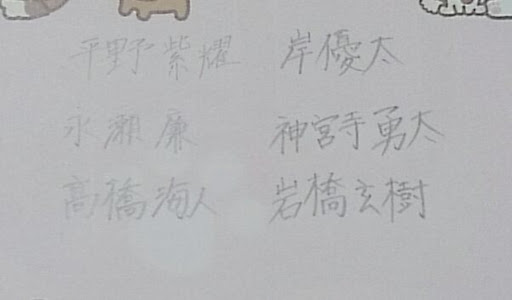 平野紫耀 岸優太
永瀬廉 神宮寺勇太
髙橋海人 岩橋玄樹